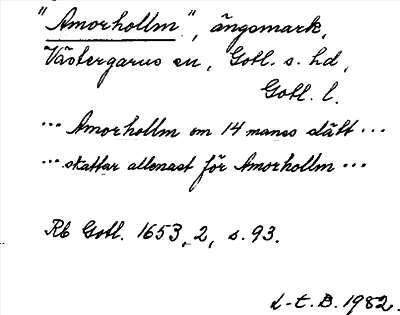 "Amorhollm", ängsmark,
Västergarns sn, Gotl. s. hd,
Gotl. l.
... Amorhollm om 14 manss slått ...
... skattar allenast för Amorhollm ...
Rb Gotl. 1653, 2, s. 93.
L-t. B. 1982.